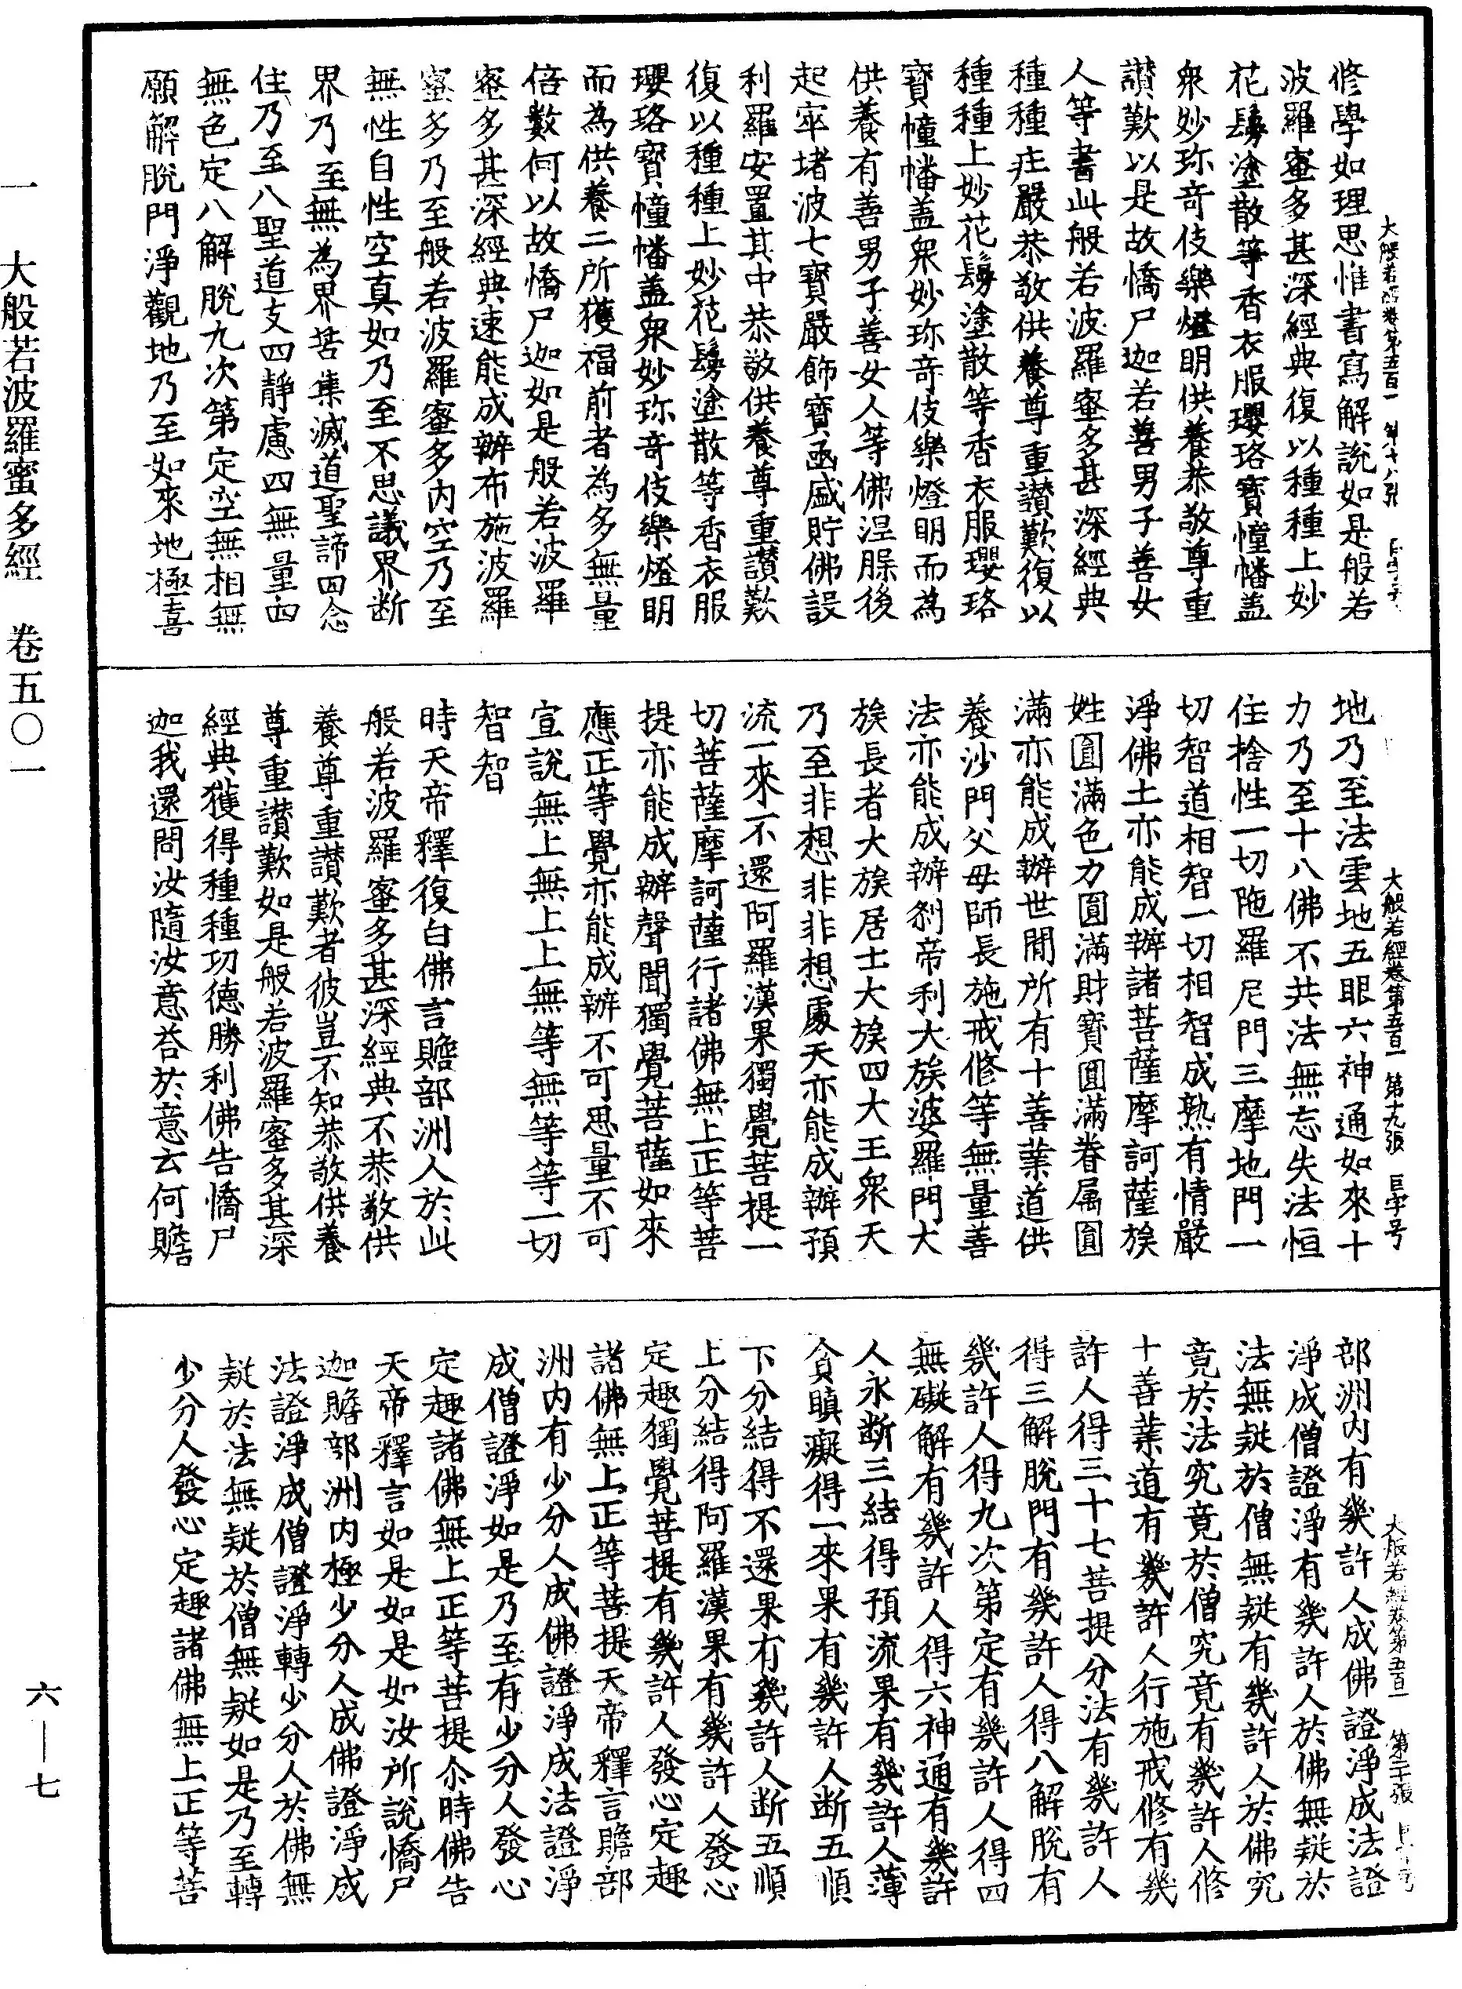 大般若經卷第五百一 第十八張 巨字号
修學如理思惟書寫解說如是般若
波羅蜜多甚深經典復以種種上妙
花鬘塗散等香衣服瓔珞寶幢幡盖
衆妙珎奇伎樂燈明供養恭敬尊重
讃歎以是故憍尸迦若善男子善女
人等書此般若波羅蜜多甚深經典
種種庄嚴恭敬供養尊重讃歎復以
種種上妙花鬘塗散等香衣服瓔珞
寶幢幡盖衆妙珎奇伎樂燈明而為
供養有善男子善女人等佛涅槃後
起窣堵波七寶嚴飾寶函盛貯佛設
利羅安置其中恭敬供養尊重讃歎
復以種種上妙花鬘塗散等香衣服
瓔珞寶幢幡盖衆妙珎奇伎樂燈明
而為供養二所獲福前者為多無量
倍數何以故憍尸迦如是般若波羅
蜜多甚深經典速能成辦布施波羅
蜜多乃至般若波羅蜜多内空乃至
無性自性空真如乃至不思議界断
界乃至無為界苦集滅道聖諦四念
住乃至八聖道支四靜慮四無量四
無色定八解脫九次第定空無相無
願解脫門淨觀地乃至如來地極喜
大般若經卷第五百一 第十九張 巨字号
地乃至法雲地五眼六神通如來十
力乃至十八佛不共法無忘失法恒
住捨性一切陁羅尼門三摩地門一
切智道相智一切相智成熟有情嚴
淨佛土亦能成辦諸菩薩摩訶薩族
姓圓滿色力圓滿財寶圓滿眷属圓
滿亦能成辦世間所有十善業道供
養沙門父母師長施戒修等無量善
法亦能成辦剎帝利大族婆羅門大
族長者大族居士大族四大王衆天
乃至非想非非想處天亦能成辦預
流一來不還阿羅漢果獨覺菩提一
切菩薩摩訶薩行諸佛無上正等菩
提亦能成辦聲聞獨覺菩薩如來
應正等覺亦能成辦不可思量不可
宣說無上無上上無等無等等一切
智智
時天帝釋復白佛言贍部洲人於此
般若波羅蜜多甚深經典不恭敬供
養尊重讃歎者彼豈不知恭敬供養
尊重讃歎如是般若波羅蜜多甚深
經典獲得種種功德勝利佛告憍尸
迦我還問汝隨汝意荅於意云何贍
大般若經卷第五百一 第二十張 巨字号
部洲内有幾許人成佛證淨成法證
淨成僧證淨有幾許人於佛無疑於
法無疑於僧無疑有幾許人於佛究
竟於法究竟於僧究竟有幾許人修
十善業道有幾許人行施戒修有幾
許人得三十七菩提分法有幾許人
得三解脫門有幾許人得八解脫有
幾許人得九次第定有幾許人得四
無礙解有幾許人得六神通有幾許
人永断三結得預流果有幾許人薄
貪瞋癡得一來果有幾許人断五順
下分結得不還果有幾許人断五順
上分結得阿羅漢果有幾許人發心
定趣獨覺菩提有幾許人發心定趣
諸佛無上正等菩提天帝釋言贍部
洲内有少分人成佛證淨成法證淨
成僧證淨如是乃至有少分人發心
定趣諸佛無上正等菩提尒時佛告
天帝釋言如是如是如汝所說憍尸
迦贍部洲内極少分人成佛證淨成
法證淨成僧證淨轉少分人於佛無
疑於法無疑於僧無疑如是乃至轉
少分人發心定趣諸佛無上正等菩
一 大般若波羅蜜多經 卷五〇一
六—七